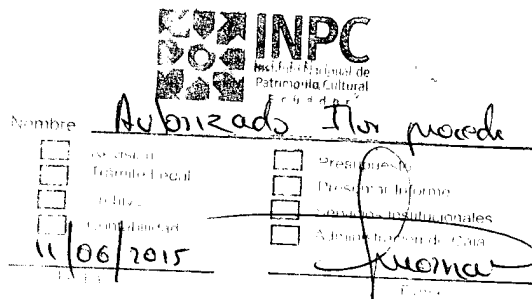 INPC
Instituto Nacional de
Patrimonio Cultural
Ecuador
Nombre Autorizado Flor procede
Trámite Legal
Archivo
Contabilidad
Presupuesto
Presentar Informe
Servicios Institucionales
Administración de Caja
11/06/2015
Firma